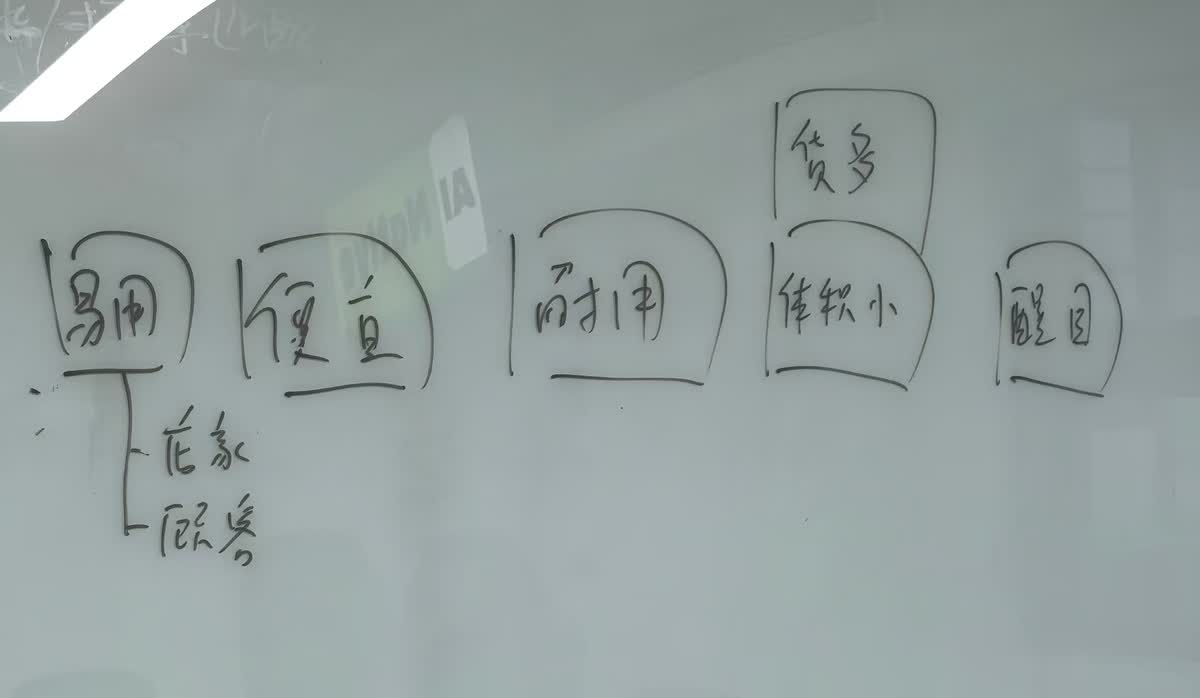 货多
易用 便宜 耐用 体积小 醒目
店家
顾客